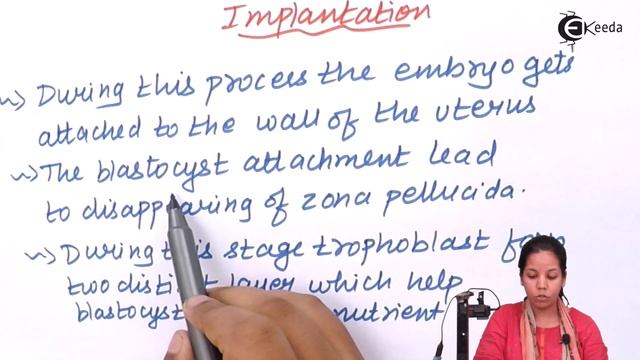 Implantation
Ekeeda
During this process the embryo gets
attached to the wall of the uterus
The blastocyst attachment lead
to disappearing of zona pellucida.
During this stage trophoblast
two distinct layer which help
blastocyst nutrient